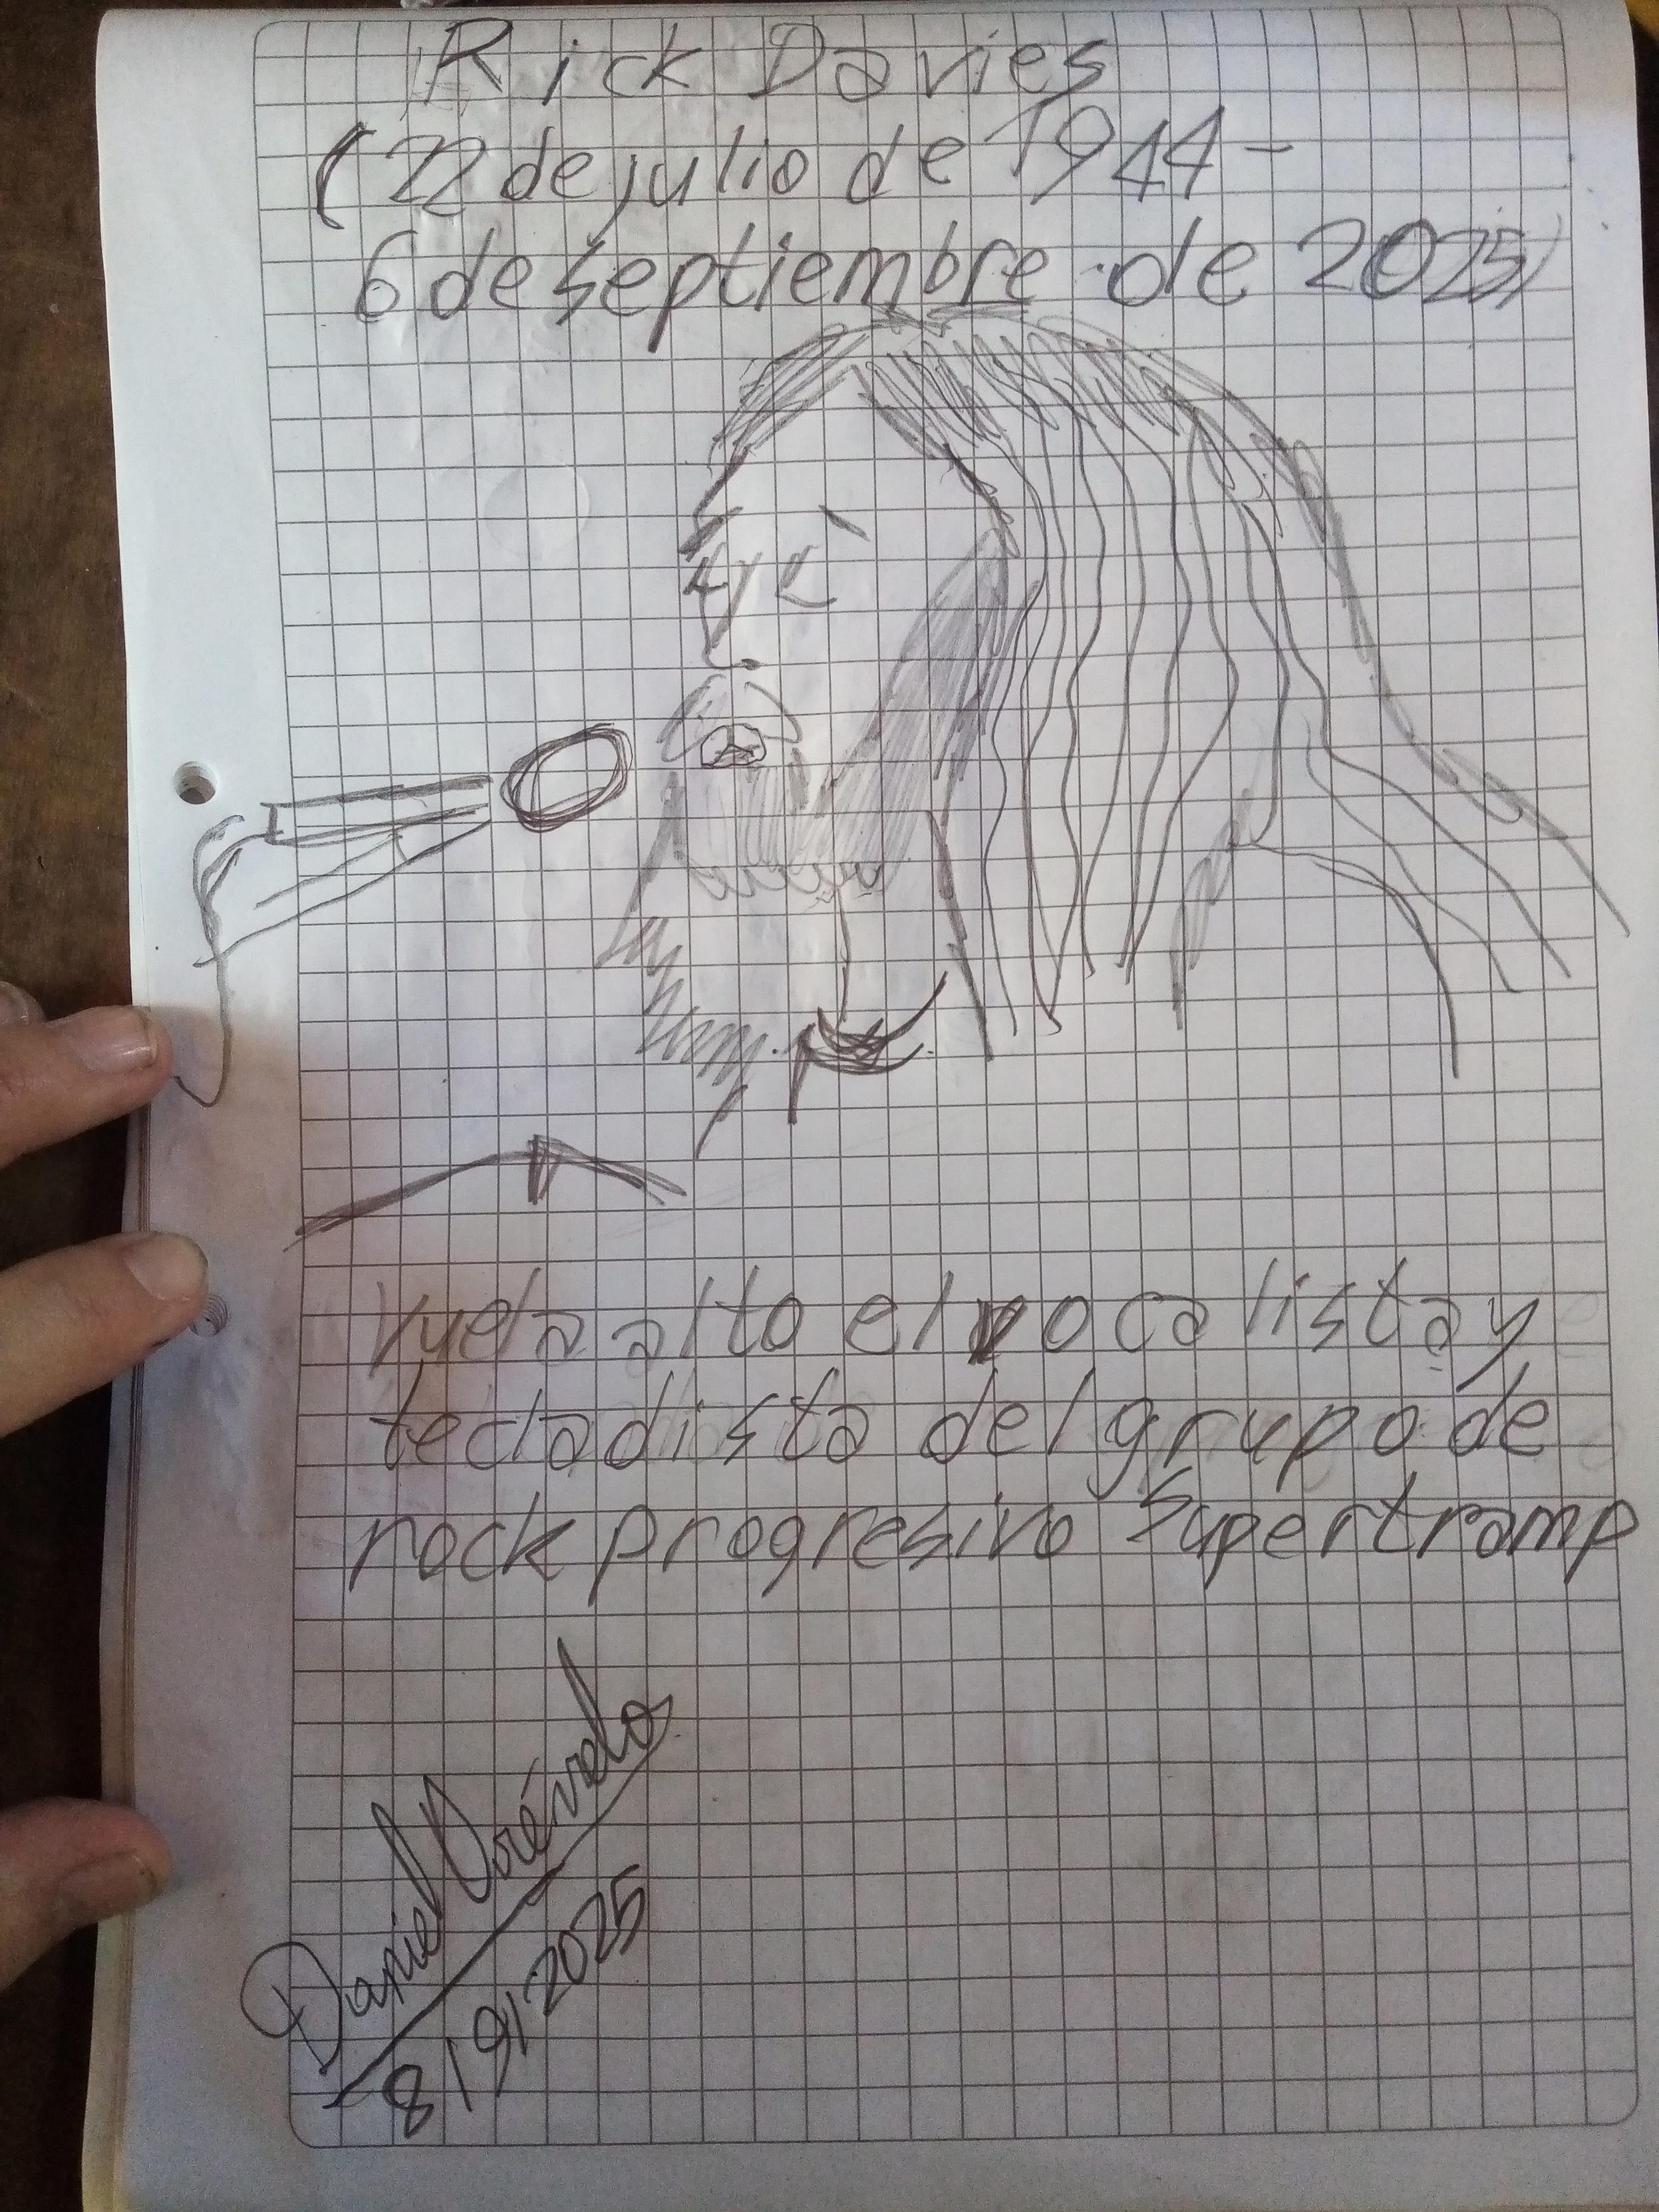 Rick Davies
(22 de julio de 1944-
6 de septiembre de 2025)
Vuela alto el vocalista y
tecladista del grupo de
rock progresivo Supertramp
Daniel Dorévelo
8/9/2025